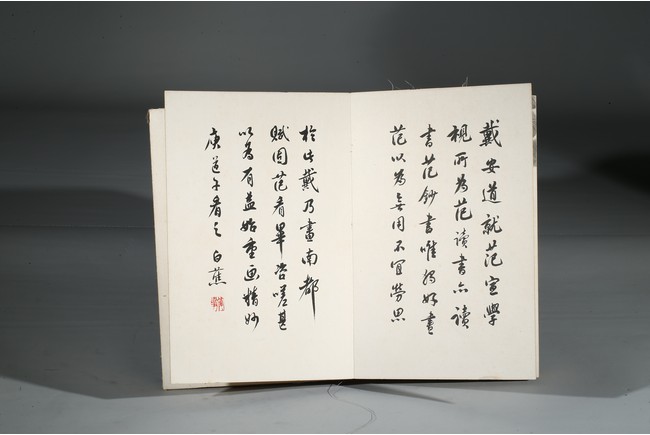 戴安道就范宣學
視所為范讀書亦讀
書范鈔書唯獨好畫
范以為無用不宜勞思
於此戴乃畫南都
賦圖范看畢咨嗟甚
以為有益始重画精妙
庾道季看之 白蕉